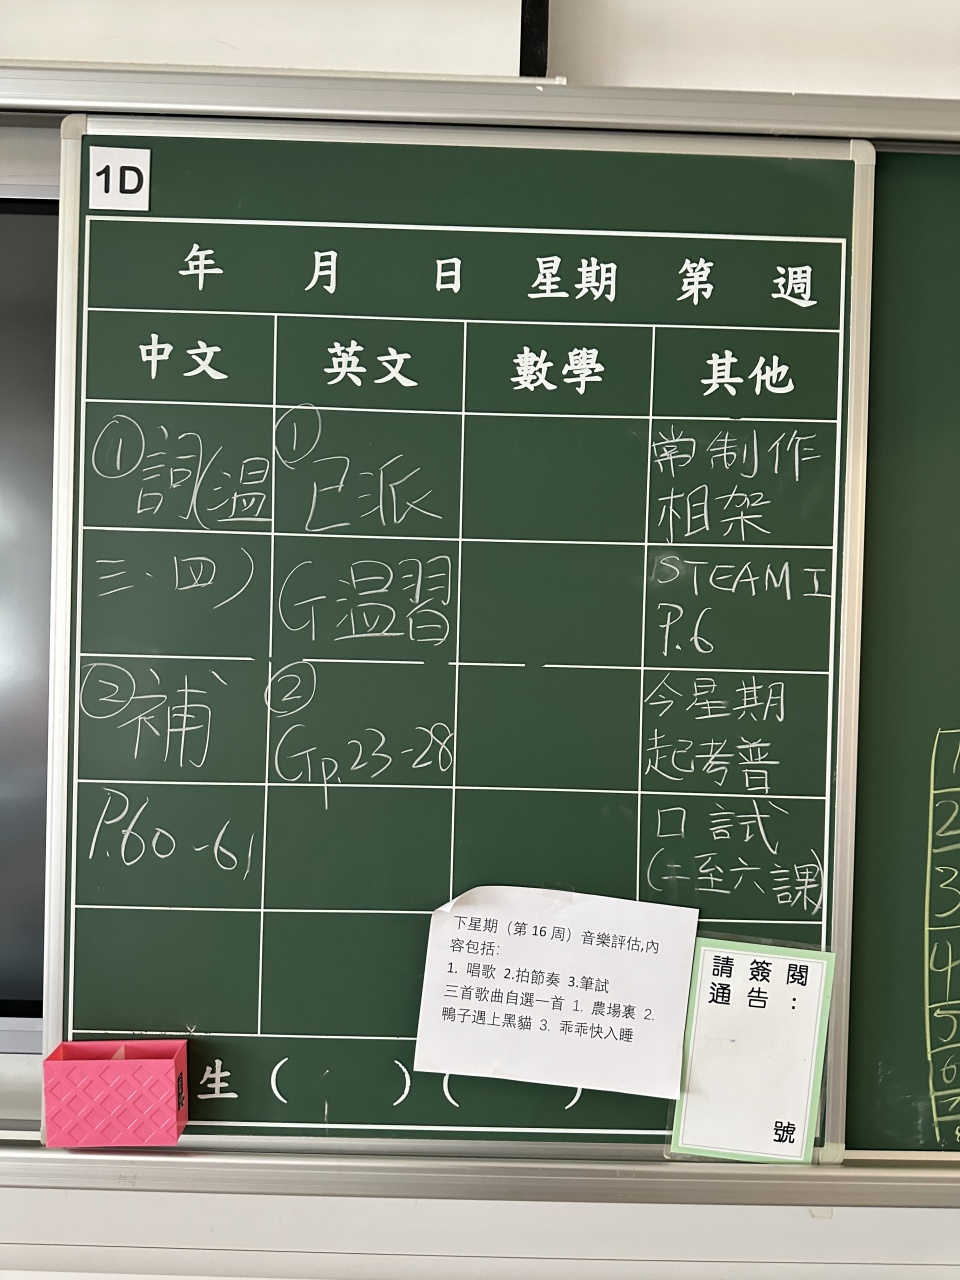 1D
年 月 日 星期 第 週
中文 英文 數學 其他
①詞(溫
三、四)
②補
P.60-61
①
已派
G溫習
②
Gp.23-28
常制作
相架
STEAM工
P.6
今星期
起考普
口試
(二至六課)
下星期（第 16 周）音樂評估,內
容包括:
1. 唱歌 2.拍節奏 3.筆試
三首歌曲自選一首 1. 農場裏 2.
鴨子遇上黑貓 3. 乖乖快入睡
請簽閱
通告:
號
生 ( ) ( )
2
3
4
5
6
7
8